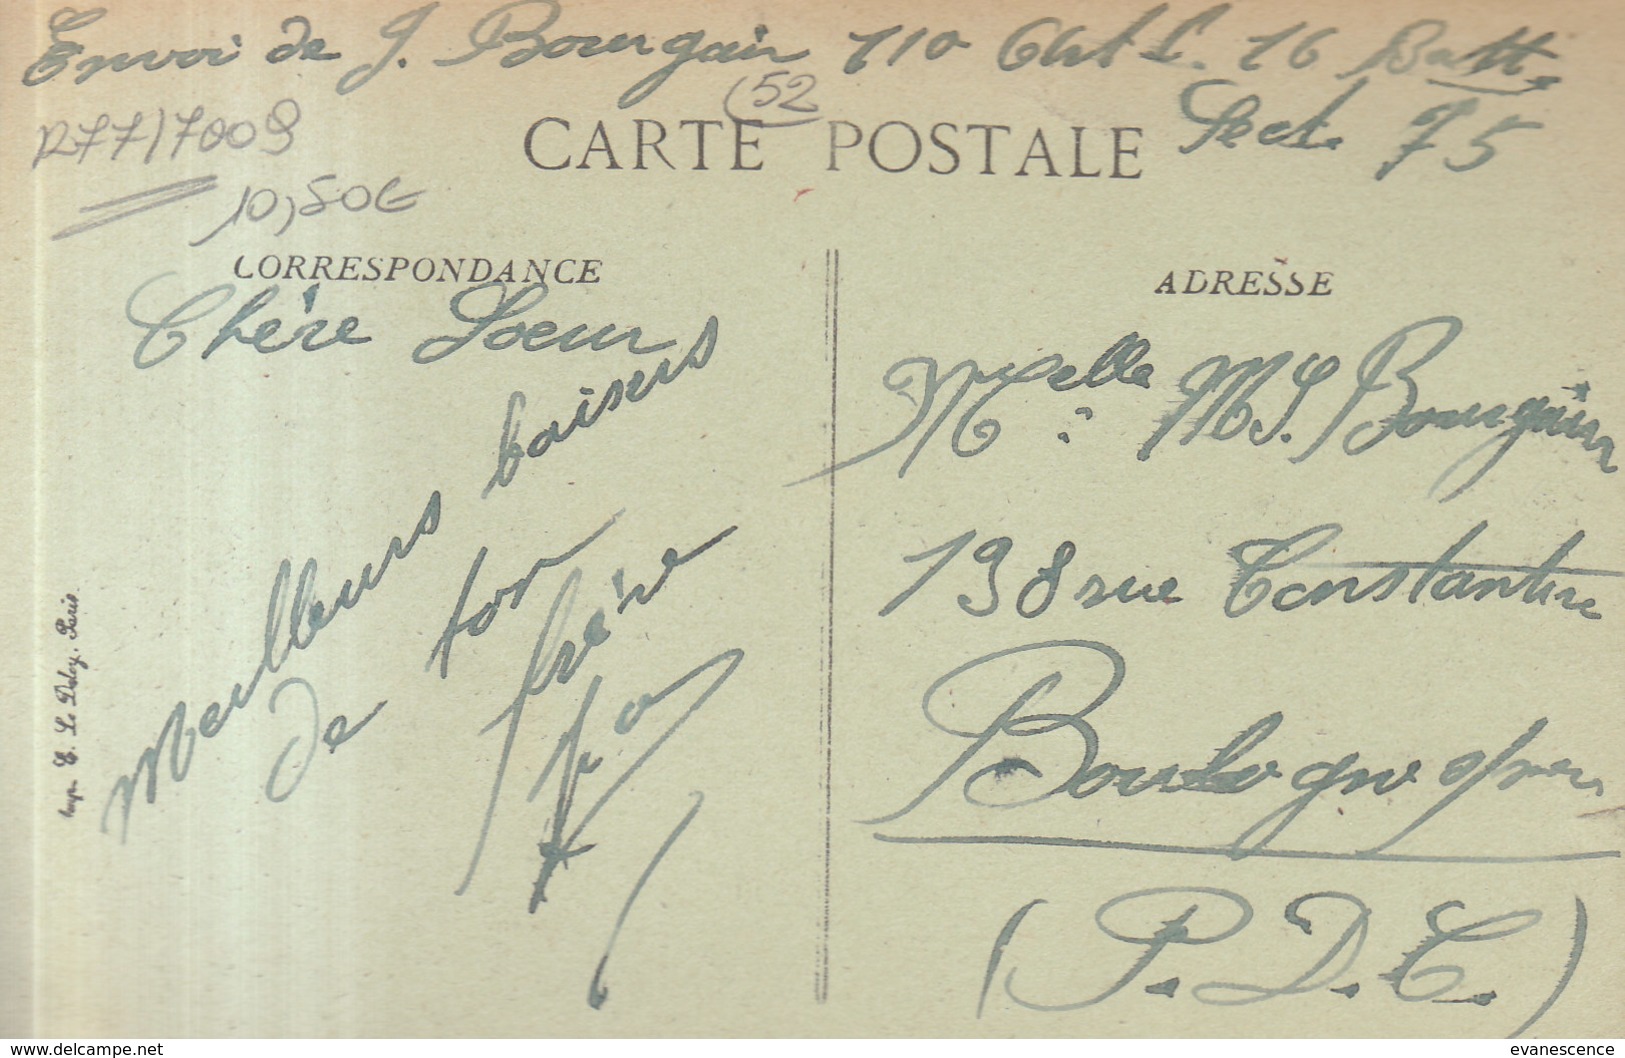 Envoi de J. Bourgain 110 16 Batt.
Sect. 75
(52
R77/7009
10,50€
CARTE POSTALE
CORRESPONDANCE
Chère Soeur
Meilleurs baisers
de ton
frère
ADRESSE
Melle M.L. Bourgain
198 rue Constantine
Boulogne s/mer
(P.D.C.)
Imp. E. Le Deley, Paris
www.delcampe.net
evanescence